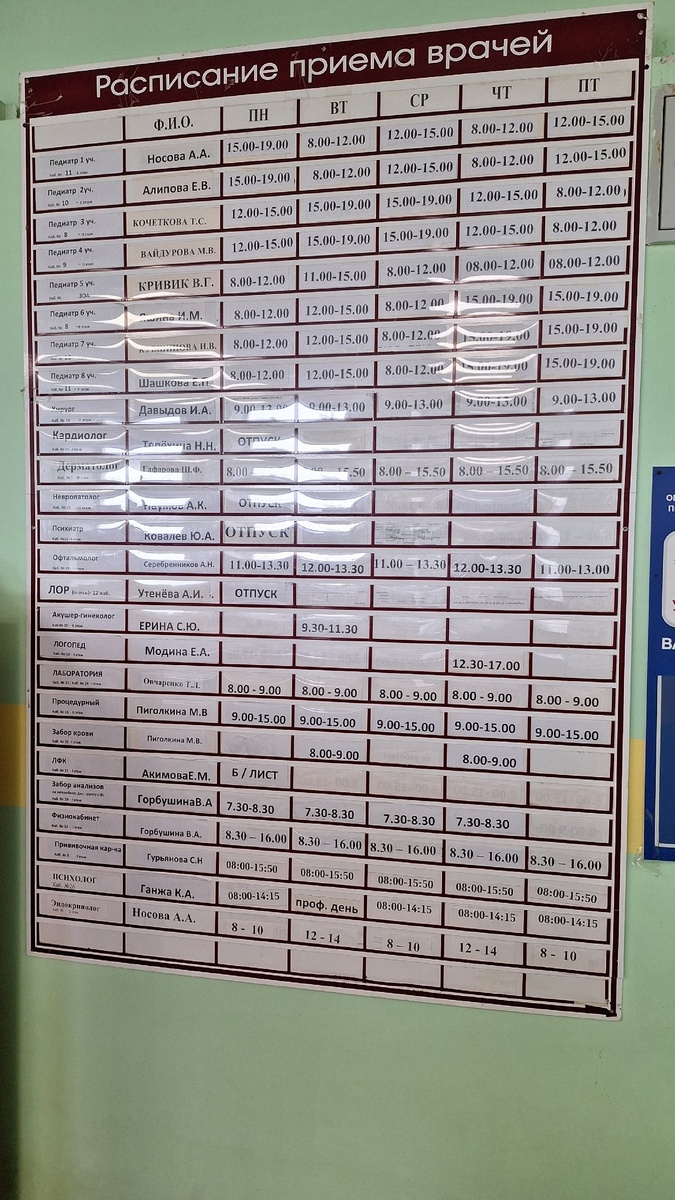 Расписание приема врачей
Ф.И.О. ПН ВТ СР ЧТ ПТ
Педиатр 1 уч. Носова А.А. 15.00-19.00 8.00-12.00 12.00-15.00 8.00-12.00 12.00-15.00
Каб. № 11
Педиатр 2уч. Алипова Е.В. 15.00-19.00 8.00-12.00 12.00-15.00 8.00-12.00 12.00-15.00
Каб. № 10
Педиатр 3 уч КОЧЕТКОВА Т.С. 12.00-15.00 15.00-19.00 15.00-19.00 12.00-15.00 8.00-12.00
Каб. № 8
Педиатр 4 уч. ВАЙДУРОВА М.В. 12.00-15.00 15.00-19.00 15.00-19.00 12.00-15.00 8.00-12.00
Каб. № 9
Педиатр 5 уч. КРИВИК В.Г. 8.00-12.00 11.00-15.00 8.00-12.00 08.00-12.00 08.00-12.00
Педиатр 6 уч. Яшина И.М. 8.00-12.00 12.00-15.00 8.00-12.00 15.00-19.00 15.00-19.00
Каб. № 8
Педиатр 7 уч. И.В. 8.00-12.00 12.00-15.00 8.00-12.00 15.00-19.00 15.00-19.00
Педиатр 8 уч. Шашкова 8.00-12.00 12.00-15.00 8.00-12.00 15.00-19.00 15.00-19.00
Каб. № 11
Хирург Давыдов И.А. 9.00-13.00 9.00-13.00 9.00-13.00 9.00-13.00 9.00-13.00
Кардиолог Терёхина Н.Н. ОТПУСК
Дерматолог Гафарова Ш.Ф. 8.00 15.50 8.00 – 15.50 8.00 – 15.50 8.00 – 15.50
Невропатолог Наумов А.К. ОТПУСК
Психиатр Ковалев Ю.А. ОТПУСК
Офтальмолог Серебренников А.Н. 11.00-13.30 12.00-13.30 11.00 – 13.30 12.00-13.30 11.00-13.00
ЛОР 12 каб. Утенёва А.И. ОТПУСК
Акушер-гинеколог ЕРИНА С.Ю. 9.30-11.30
ЛОГОПЕД Модина Е.А. 12.30-17.00
ЛАБОРАТОРИЯ Овчаренко Т.Л. 8.00 - 9.00 8.00 - 9.00 8.00 - 9.00 8.00 - 9.00 8.00 - 9.00
Процедурный Пиголкина М.В 9.00-15.00 9.00-15.00 9.00-15.00 9.00-15.00 9.00-15.00
Забор крови Пиголкина М.В. 8.00-9.00 8.00-9.00
ЛФК АкимоваЕ.М. Б / ЛИСТ
Забор анализов ГорбушинаВ.А 7.30-8.30 7.30-8.30 7.30-8.30 7.30-8.30
Физиокабинет Горбушина В.А. 8.30 – 16.00 8.30 – 16.00 8.30 – 16.00 8.30 – 16.00 8.30 – 16.00
Прививочная кар-ка Гурьянова С.Н 08:00-15:50 08:00-15:50 08:00-15:50 08:00-15:50 08:00-15:50
ПСИХОЛОГ Ганжа К.А. 08:00-14:15 проф. день 08:00-14:15 08:00-14:15 08:00-14:15
Каб. №26
Эндокринолог Носова А.А. 8 - 10 12 - 14 8 – 10 12 - 14 8 - 10